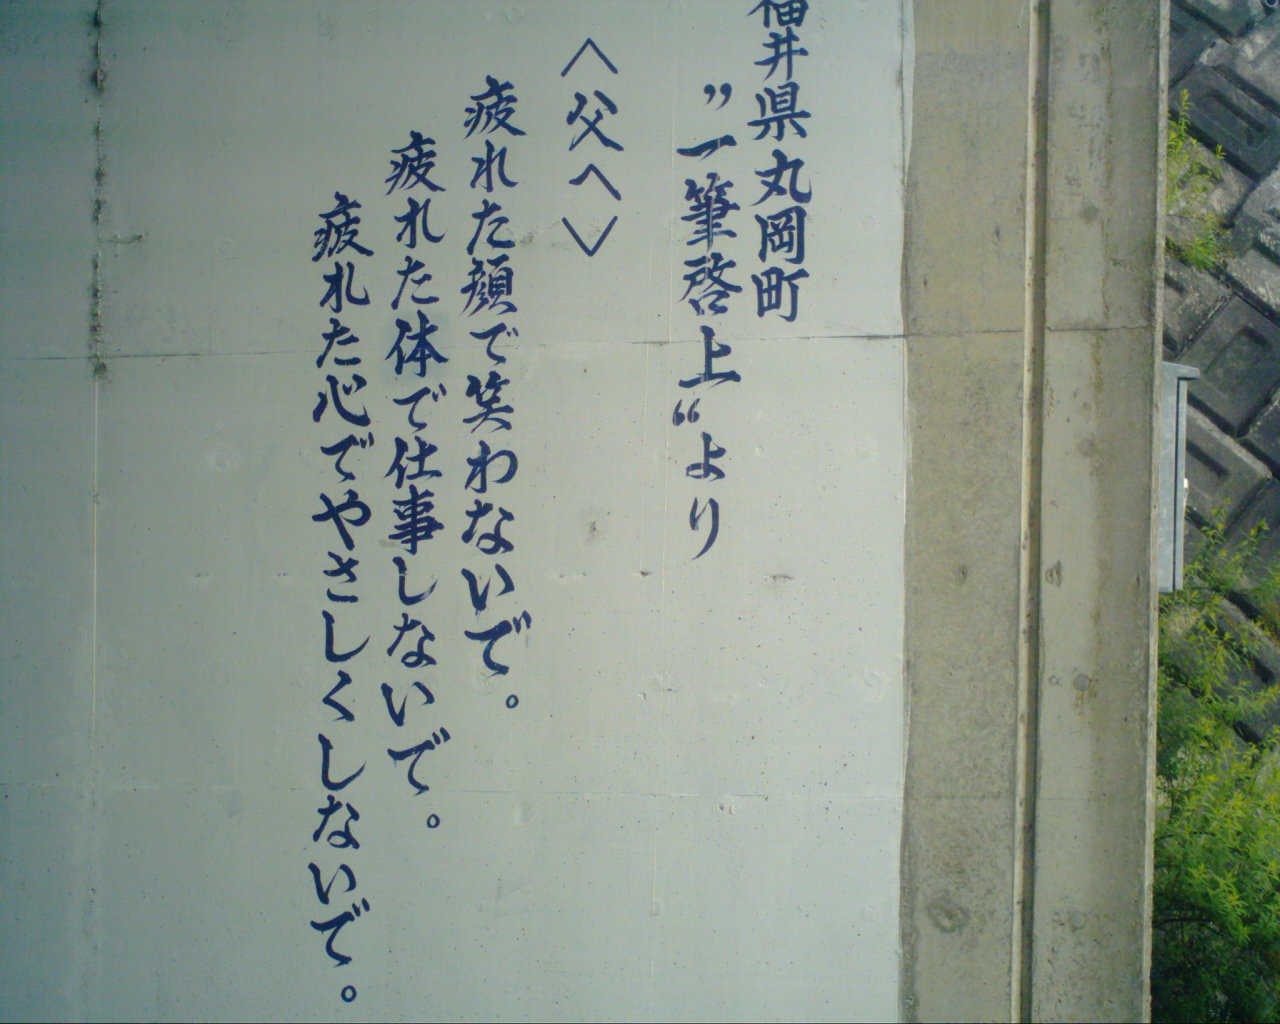 福井県丸岡町
”一筆啓上“より
〈父へ〉
疲れた顔で笑わないで。
疲れた体で仕事しないで。
疲れた心でやさしくしないで。